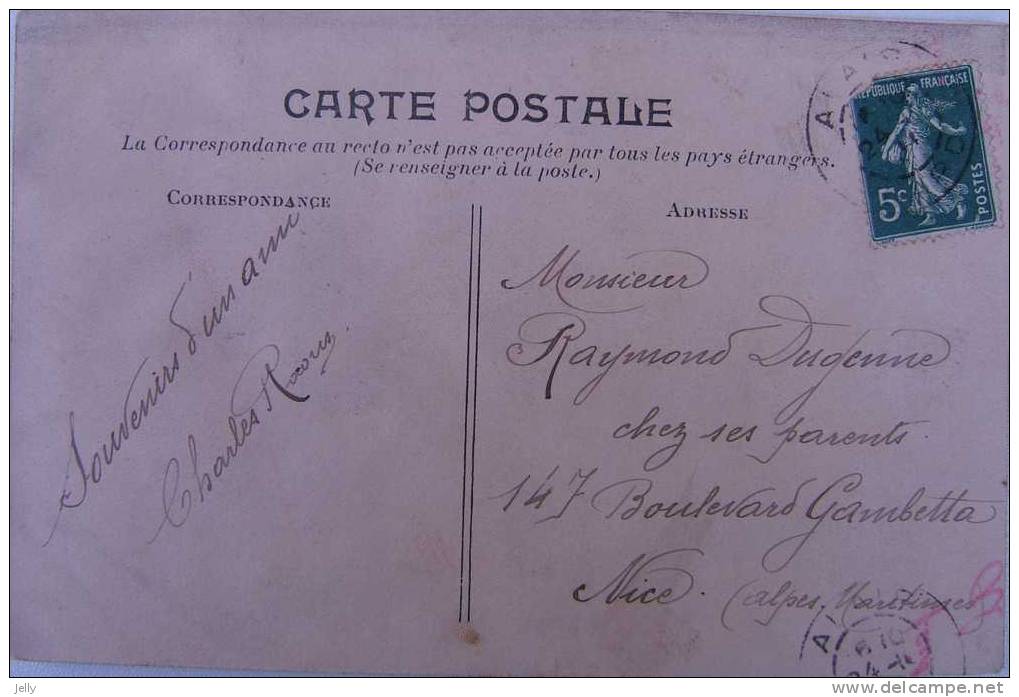 CARTE POSTALE
La Correspondance au recto n'est pas acceptée par tous les pays étrangers.
(Se renseigner à la poste.)
CORRESPONDANCE
Souvenirs d'un ami
Charles
ADRESSE
Monsieur
Raymond Dugenne
chez ses parents.
147 Boulevard Gambetta
Nice. (Alpes Maritimes
REPUBLIQUE FRANÇAISE
5c
POSTES
jelly
www.delcampe.net